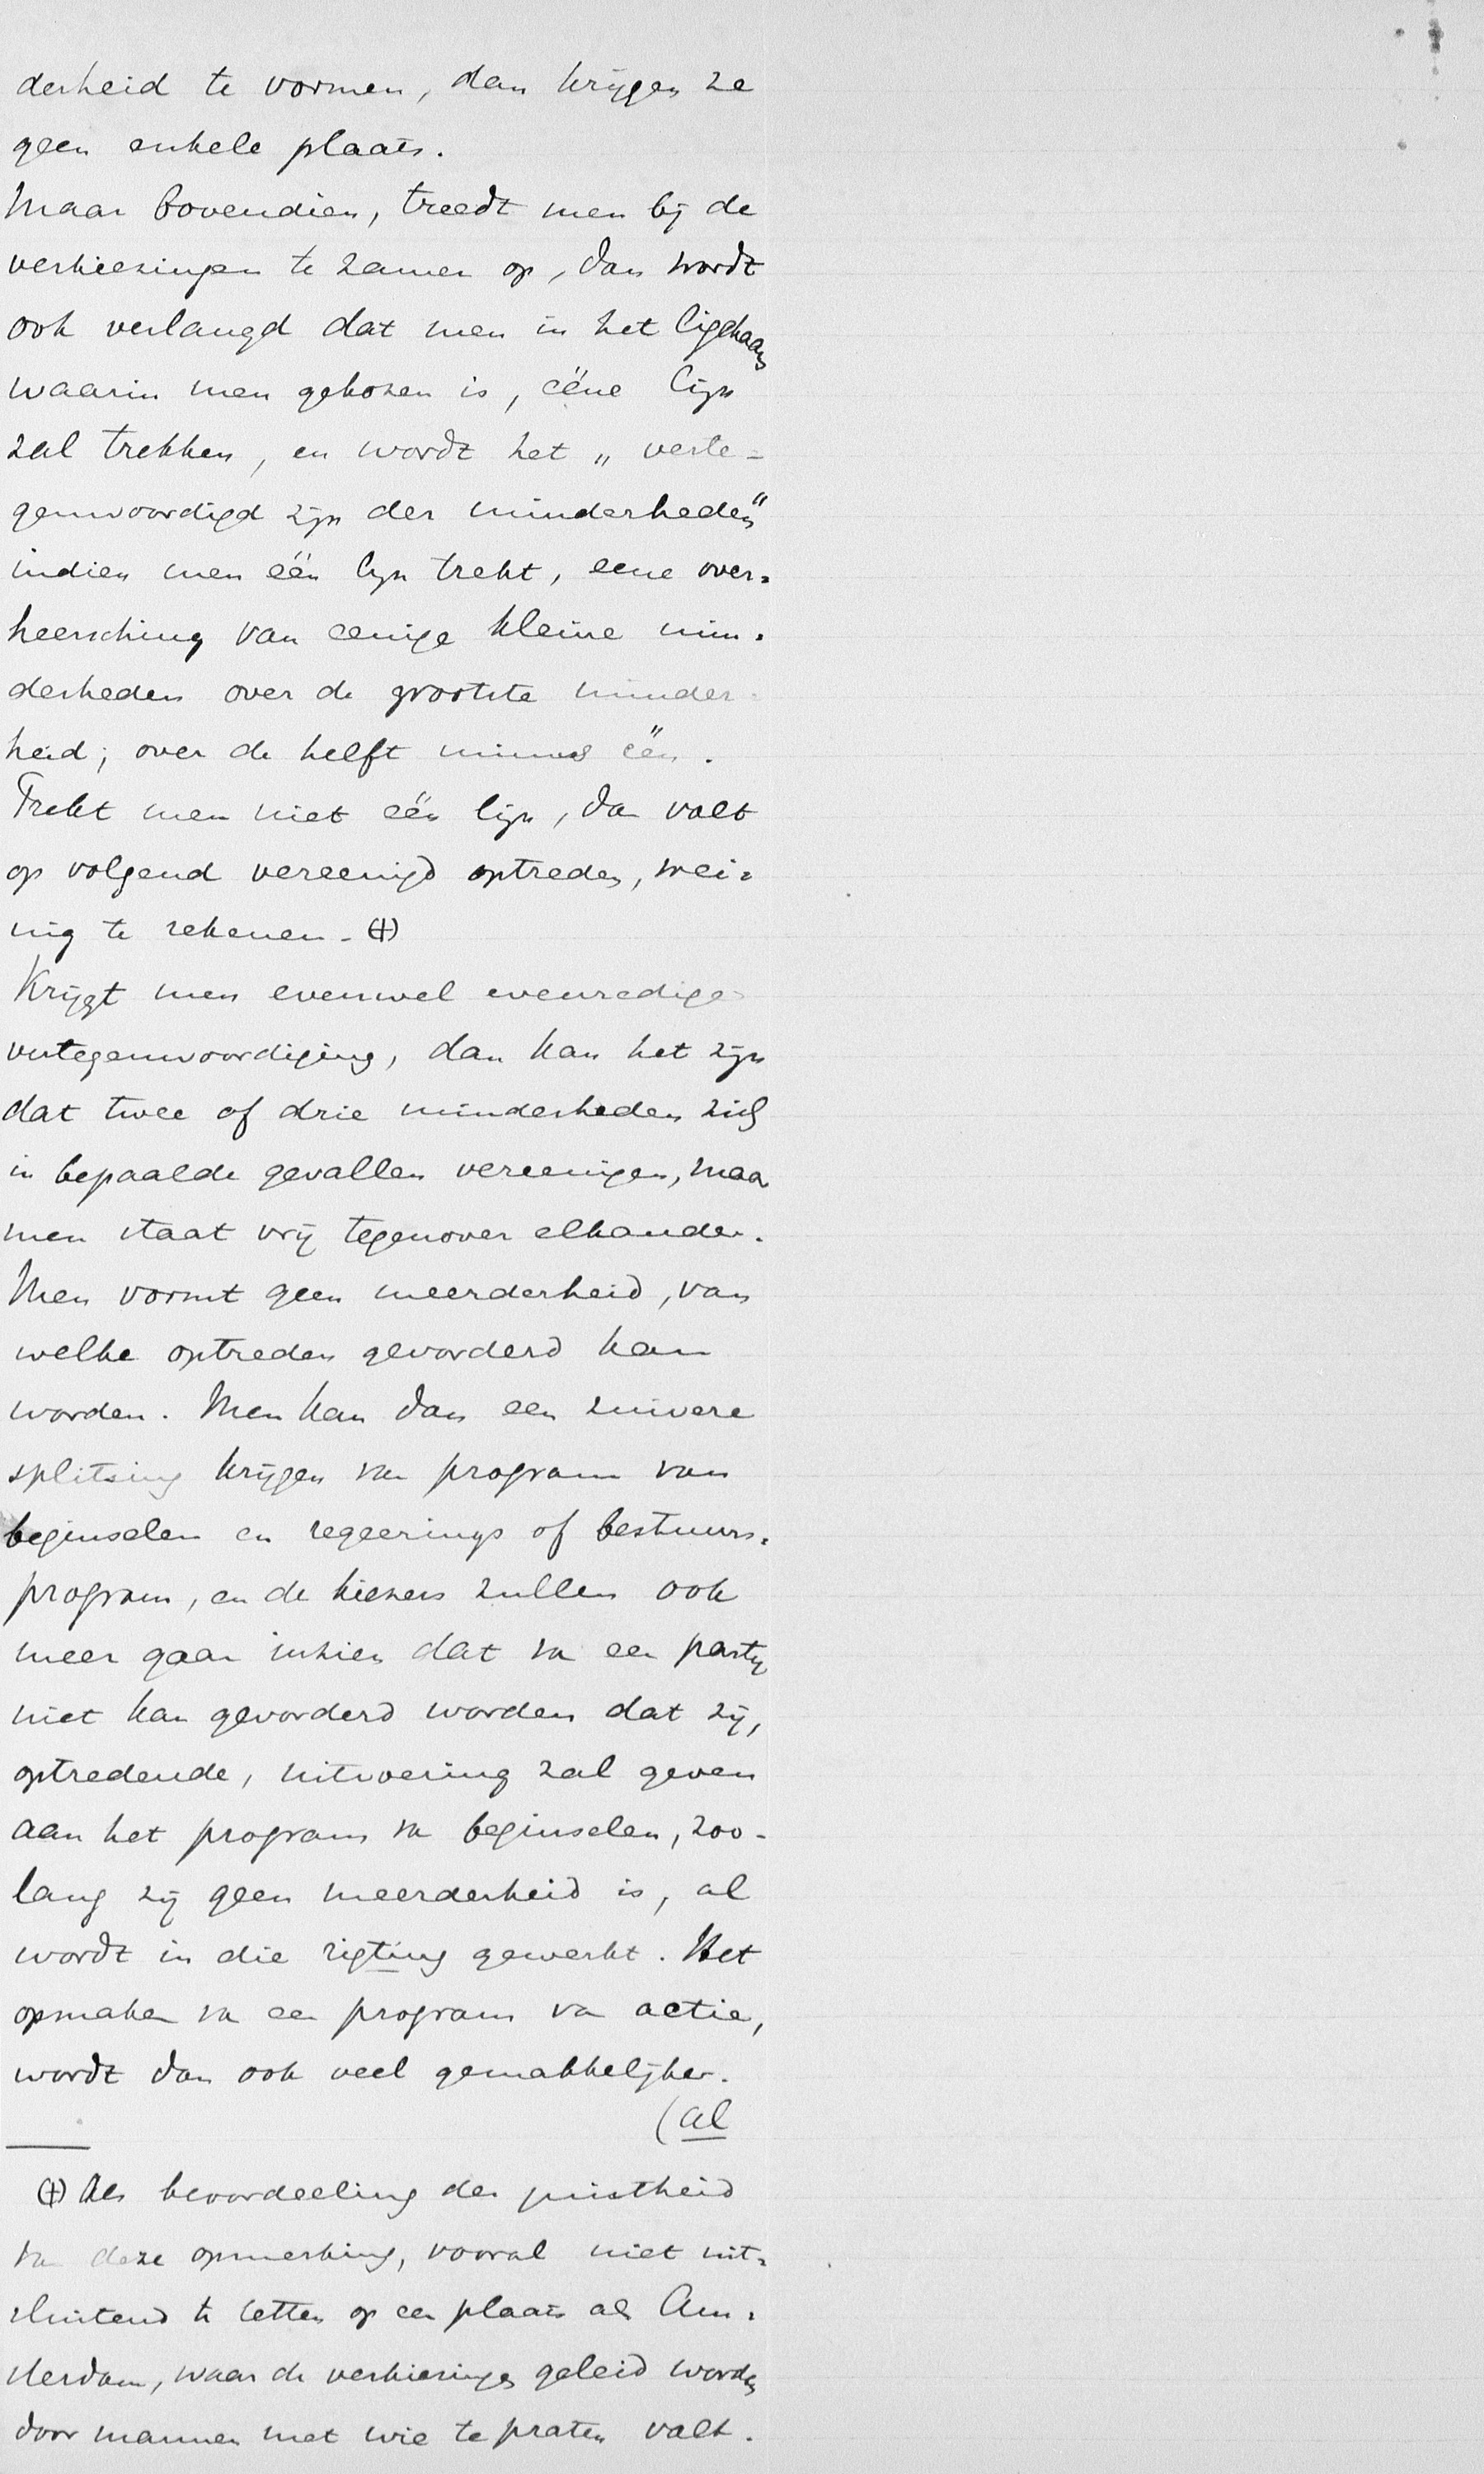 derheid te vormen, dan krijgen ze
geen enkele plaats.
Maar bovendien, treedt men bij de
verkiezingen te zamen op, dan wordt
ook verlangd dat men in het ligchaam
waarin men gekozen is, ééne lijn
zal trekken, en wordt het „verte-
genwoordigd zijn der minderheden"
indien men één lijn trekt, eene over-
heersching van eenige kleine min-
derheden over de grootste minder-
heid; over de helft minus één.
Trekt men niet één lijn, dan valt
op volgend vereenigd optreden, wei-
nig te rekenen. (+)
Krijgt men evenwel evenredige
vertegenwoordiging, dan kan het zijn
dat twee of drie minderheden zich
in bepaalde gevallen vereenigen, maar
men staat vrij tegenover elkander.
Men vormt geen meerderheid, van
welke optreden gevorderd kan
worden. Men kan dan een zuivere
splitsing krijgen van program van
beginselen en regeerings of bestuurs-
program, en de kiezers zullen ook
meer gaan inzien dat van een partij
niet kan gevorderd worden dat zij,
optredende, uitvoering zal geven
aan het program van beginselen, zoo-
lang zij geen meerderheid is, al
wordt in die rigting gewerkt. Het
opmaken van een program van actie,
wordt dan ook veel gemakkelijker.
(al
(+) Als beoordeeling der juistheid
van deze opmerking, vooral niet uit-
sluitend te letten op een plaats als Am-
sterdam, waar de verkiezingen geleid worden
door mannen met wie te praten valt.